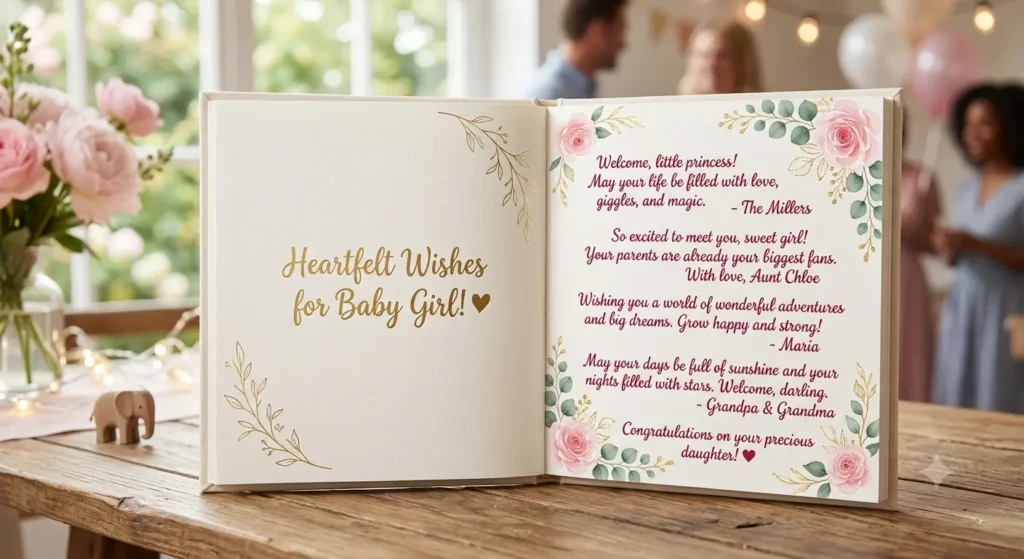 Heartfelt Wishes
for Baby Girl! ♥
Welcome, little princess!
May your life be filled with love,
giggles, and magic. - The Millers
So excited to meet you, sweet girl!
Your parents are already your biggest fans.
With love, Aunt Chloe
Wishing you a world of wonderful adventures
and big dreams. Grow happy and strong!
- Maria
May your days be full of sunshine and your
nights filled with stars. Welcome, darling.
- Grandpa & Grandma
Congratulations on your precious
daughter! ♥